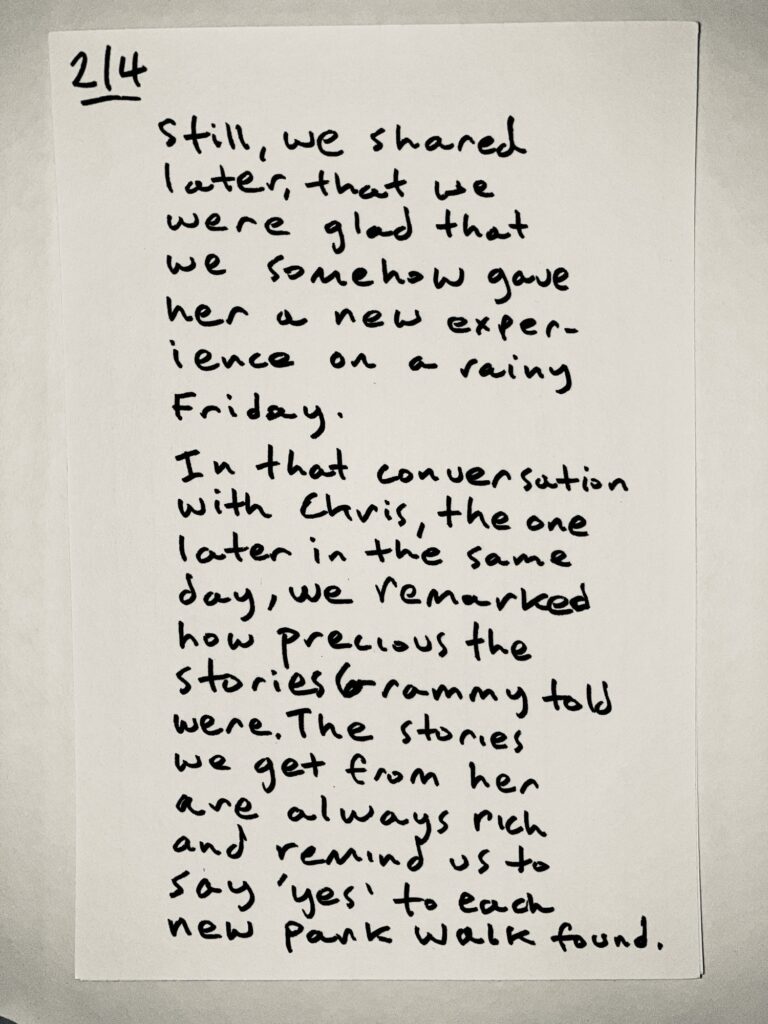 2/4
Still, we shared
later, that we
were glad that
we somehow gave
her a new exper-
ience on a rainy
Friday.
In that conversation
with Chris, the one
later in the same
day, we remarked
how precious the
stories Grammy told
were. The stories
we get from her
are always rich
and remind us to
say 'yes' to each
new park walk found.